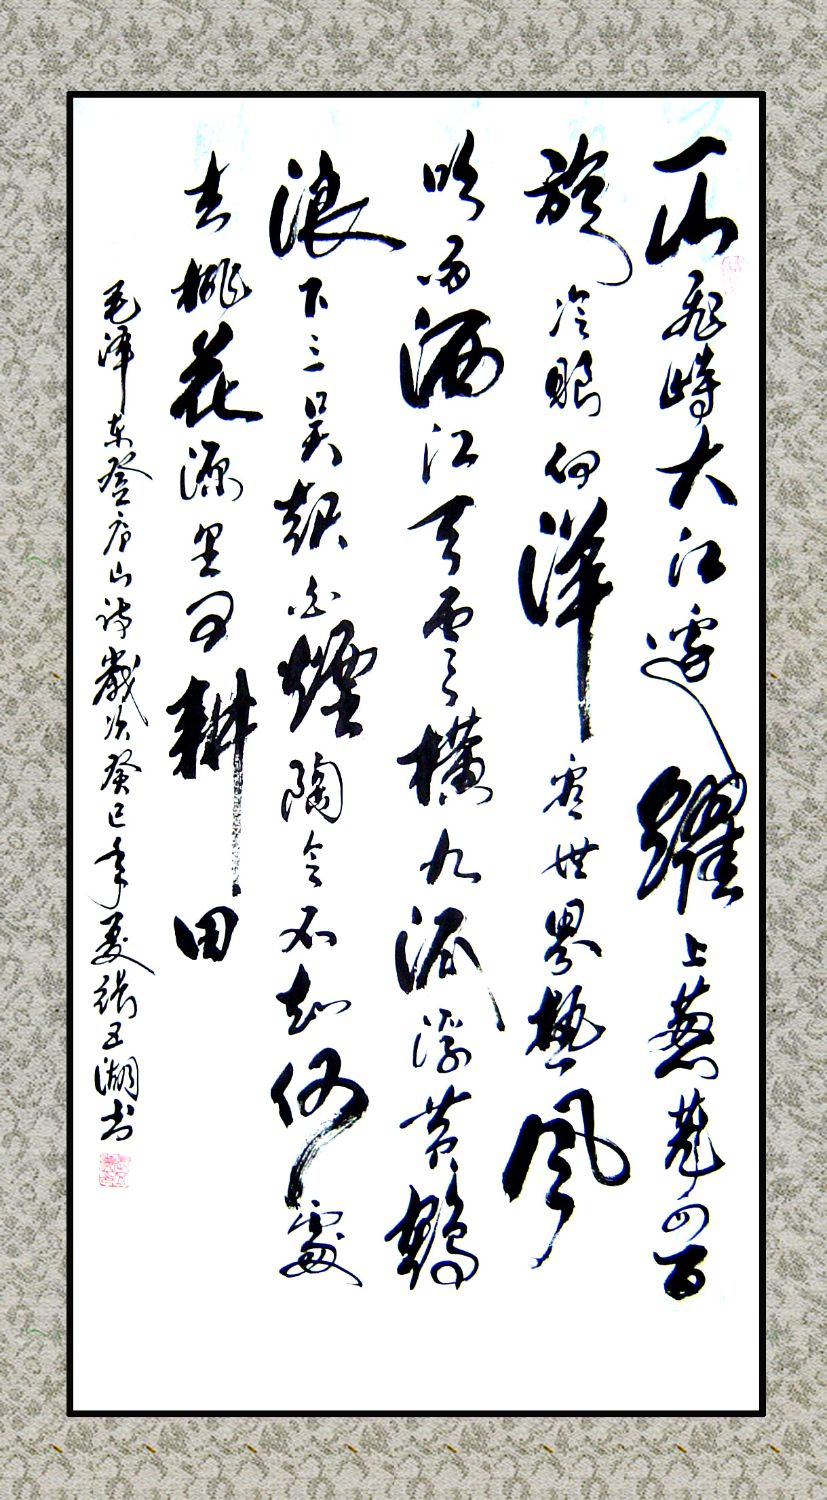 一山飛峙大江邊躍上葱蘢四百
旋冷眼向洋看世界熱風
吹雨洒江天雲横九派浮黄鶴
浪下三吴起白煙陶令不知何處
去桃花源里可耕田
毛澤东登庐山诗歲次癸巳年夏張五湖书